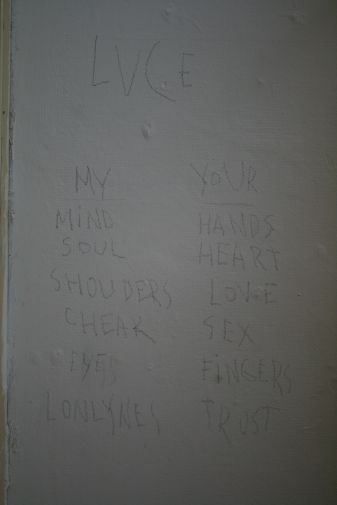 LUCE
MY YOUR
MIND HANDS
SOUL HEART
SHOUDERS LOVE
CHEAK SEX
EYES FINGERS
LONLYNES TRUST